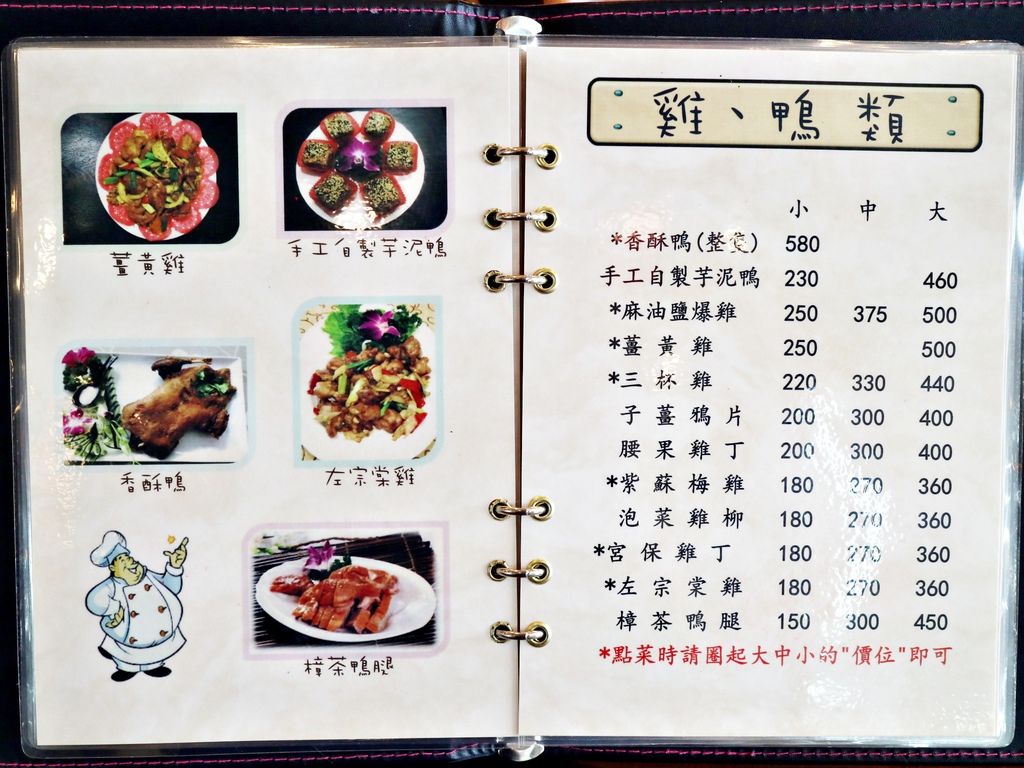 薑黃雞
手工自製芋泥鴨
香酥鴨
左宗棠雞
樟茶鴨腿
雞、鴨 類
小 中 大
*香酥鴨(整隻) 580
手工自製芋泥鴨 230 460
*麻油鹽爆雞 250 375 500
*薑黃雞 250 500
*三杯雞 220 330 440
子薑鴉片 200 300 400
腰果雞丁 200 300 400
*紫蘇梅雞 180 270 360
泡菜雞柳 180 270 360
*宮保雞丁 180 270 360
*左宗棠雞 180 270 360
樟茶鴨腿 150 300 450
*點菜時請圈起大中小的"價位"即可